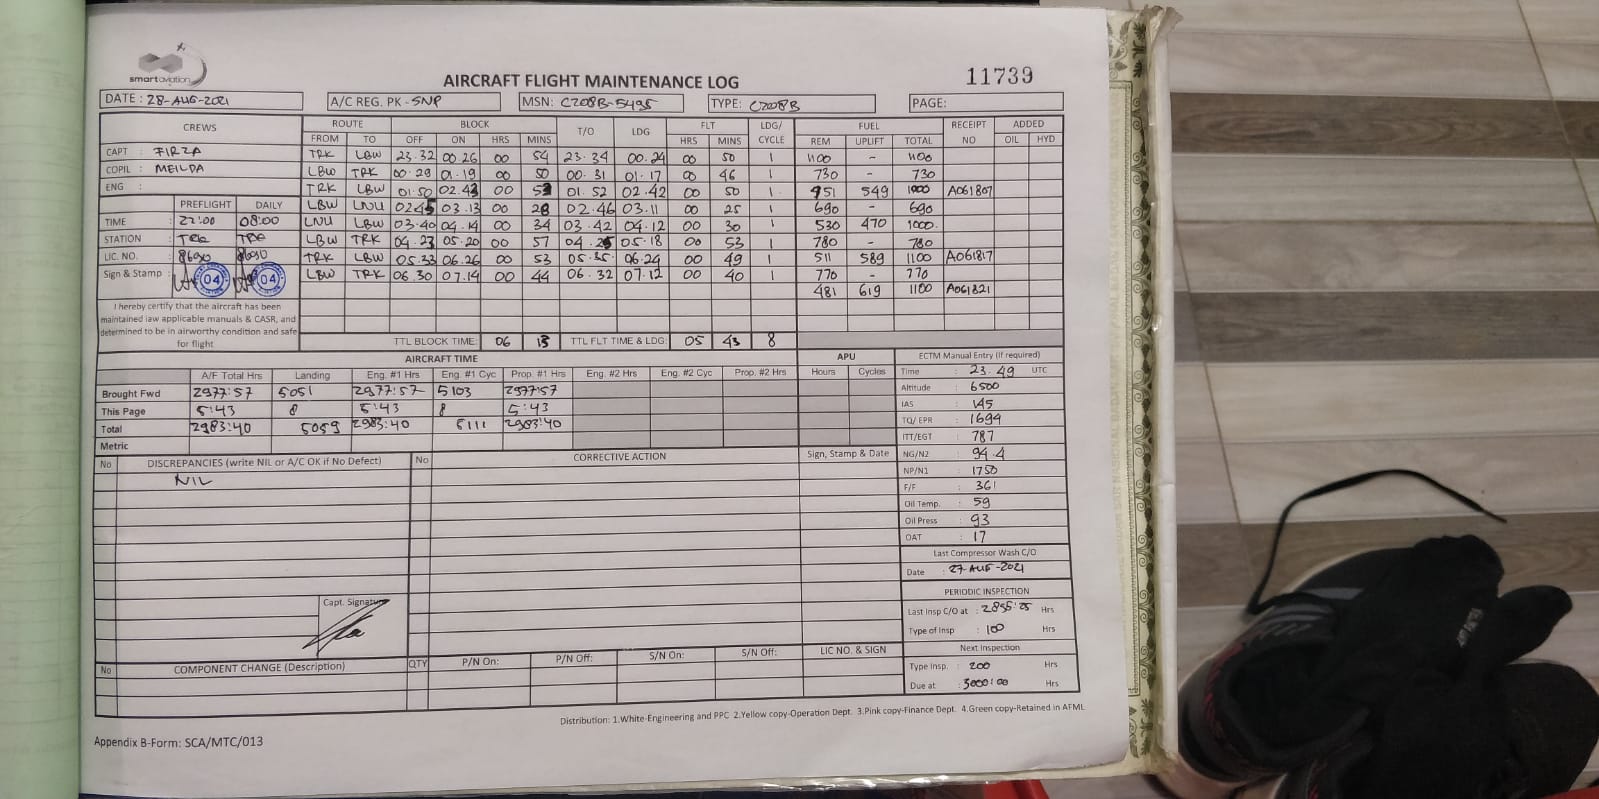 smartaviation
AIRCRAFT FLIGHT MAINTENANCE LOG 11739
DATE : 28-AUG-2021 A/C REG. PK - SNP MSN: C208B-5495 TYPE: C208B PAGE:
CREWS ROUTE BLOCK T/O LDG FLT LDG/ CYCLE FUEL RECEIPT NO ADDED
FROM TO OFF ON HRS MINS HRS MINS REM UPLIFT TOTAL OIL HYD
CAPT : FIRZA TRK LBW 23.32 00.26 00 54 23.34 00.24 00 50 1 1100 - 1100
COPIL : MEILDA LBW TRK 00.29 01.19 00 50 00.31 01.17 00 46 1 730 - 730
ENG : TRK LBW 01.50 02.43 00 53 01.52 02.42 00 50 1 951 549 A061807
PREFLIGHT DAILY LBW LNU 0245 03.13 00 28 02.46 03.11 00 25 1 690 - 690
TIME : 22:00 08:00 LNU LBW 03.40 04.14 00 34 03.42 04.12 00 30 1 530 470 1000.
STATION : TRK LBW TRK 04.23 05.20 00 57 04.25 05.18 00 53 1 780 - 780
LIC. NO. : TRK LBW 05.33 06.26 00 53 05.35 06.24 00 49 1 511 589 1100 A061817
Sign & Stamp : 04 04 LBW TRK 06.30 07.14 00 44 06.32 07.12 00 40 1 770 - 770
481 619 1100 A061821
I hereby certify that the aircraft has been
maintained iaw applicable manuals & CASR, and
determined to be in airworthy condition and safe
for flight
TTL BLOCK TIME: 06 13 TTL FLT TIME & LDG: 05 43 8
AIRCRAFT TIME APU
A/F Total Hrs Landing Eng. #1 Hrs Eng. #1 Cyc Prop. #1 Hrs Eng. #2 Hrs Eng. #2 Cyc Prop. #2 Hrs Hours Cycles
Brought Fwd 2977:57 5051 2977:57 5103 2977:57
This Page 5:43 8 5:43 8 5:43
Total 2983:40 5059 2983:40 5111 2983:40
Metric
No DISCREPANCIES (write NIL or A/C OK if No Defect) No CORRECTIVE ACTION Sign, Stamp & Date
NIL
Capt. Signature
ECTM Manual Entry (If required)
Time : 23.49 UTC
Altitude : 6500
IAS : 145
TQ/ EPR : 1694
ITT/EGT : 787
NG/N2 : 94.4
NP/N1 : 1750
F/F : 361
Oil Temp. : 59
Oil Press : 93
OAT : 17
Last Compressor Wash C/O
Date : 27-AUG-2021
PERIODIC INSPECTION
Last Insp C/O at : 2855:25 Hrs
Type of Insp : 100 Hrs
Next Inspection
Type Insp. : 200 Hrs
Due at : 3000:00 Hrs
No COMPONENT CHANGE (Description) QTY P/N On: P/N Off: S/N On: S/N Off: LIC NO. & SIGN
Distribution: 1.White-Engineering and PPC 2.Yellow copy-Operation Dept. 3.Pink copy-Finance Dept. 4.Green copy-Retained in AFML
Appendix B-Form: SCA/MTC/013